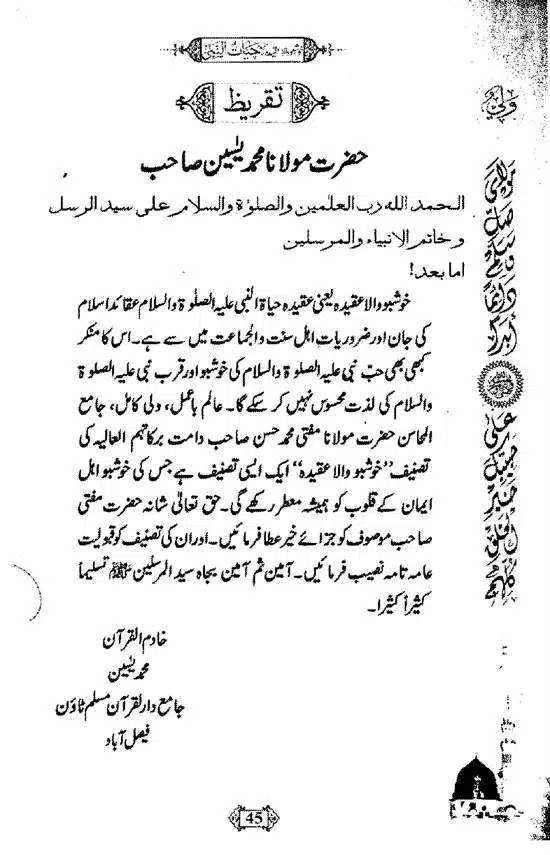 خوشبو والا عقیدہ حیات النبی
تقریظ
حضرت مولانا محمد یٰسین صاحب
الحمد الله رب العلمین والصلوٰۃ والسلام علی سید الرسل
وخاتم الانبیاء والمرسلین
اما بعد!
خوشبو والا عقیدہ یعنی عقیدہ حیاۃ النبی علیہ الصلوٰۃ والسلام عقائد اسلام
کی جان اور ضروریات اہل سنت والجماعت میں سے ہے۔ اس کا منکر
کبھی بھی حب نبی علیہ الصلوٰۃ والسلام کی خوشبو اور قرب نبی علیہ الصلوٰۃ
والسلام کی لذت محسوس نہیں کر سکے گا۔ عالم باعمل، ولی کامل، جامع
المحاسن حضرت مولانا مفتی محمد حسن صاحب دامت برکاتہم العالیہ کی
تصنیف "خوشبو والا عقیدہ" ایک ایسی تصنیف ہے جس کی خوشبو اہل
ایمان کے قلوب کو ہمیشہ معطر رکھے گی۔ حق تعالیٰ شانہ حضرت مفتی
صاحب موصوف کو جزائے خیر عطا فرمائیں۔ اور ان کی تصنیف کو قبولیت
عامہ تامہ نصیب فرمائیں۔ آمین ثم آمین بجاہ سید المرسلین ﷺ تسلیماً
کثیراً کثیرا۔
خادم القرآن
محمد یٰسین
جامع دارالقرآن مسلم ٹاؤن
فیصل آباد
مولای صل وسلم دائما ابدا
علی حبیبک خیر الخلق کلهم
45